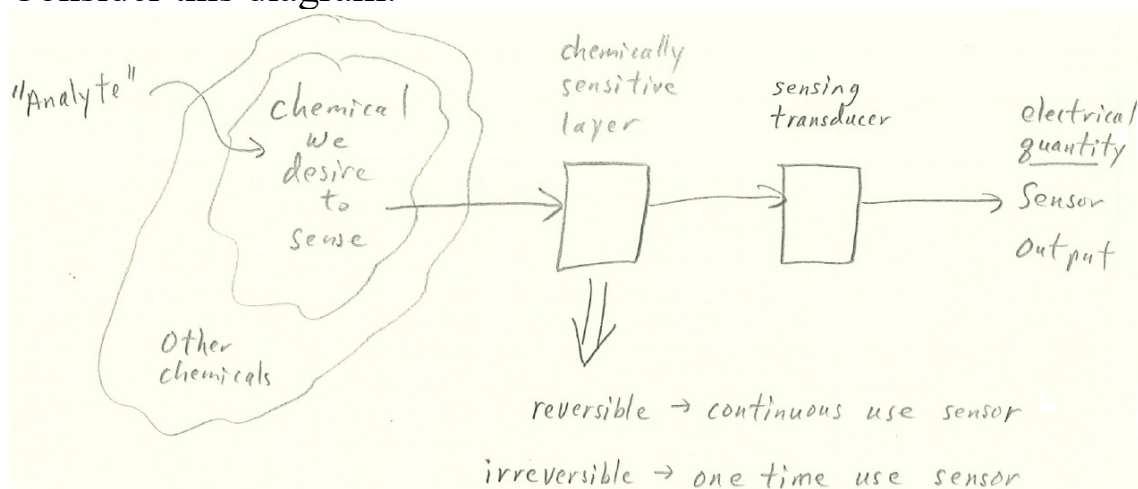 Consider this diagram:
"Analyte"
chemical
we
desire
to
sense
Other
chemicals
chemically
sensitive
layer
sensing
transducer
electrical
quantity
Sensor
output
reversible → continuous use sensor
irreversible → one time use sensor